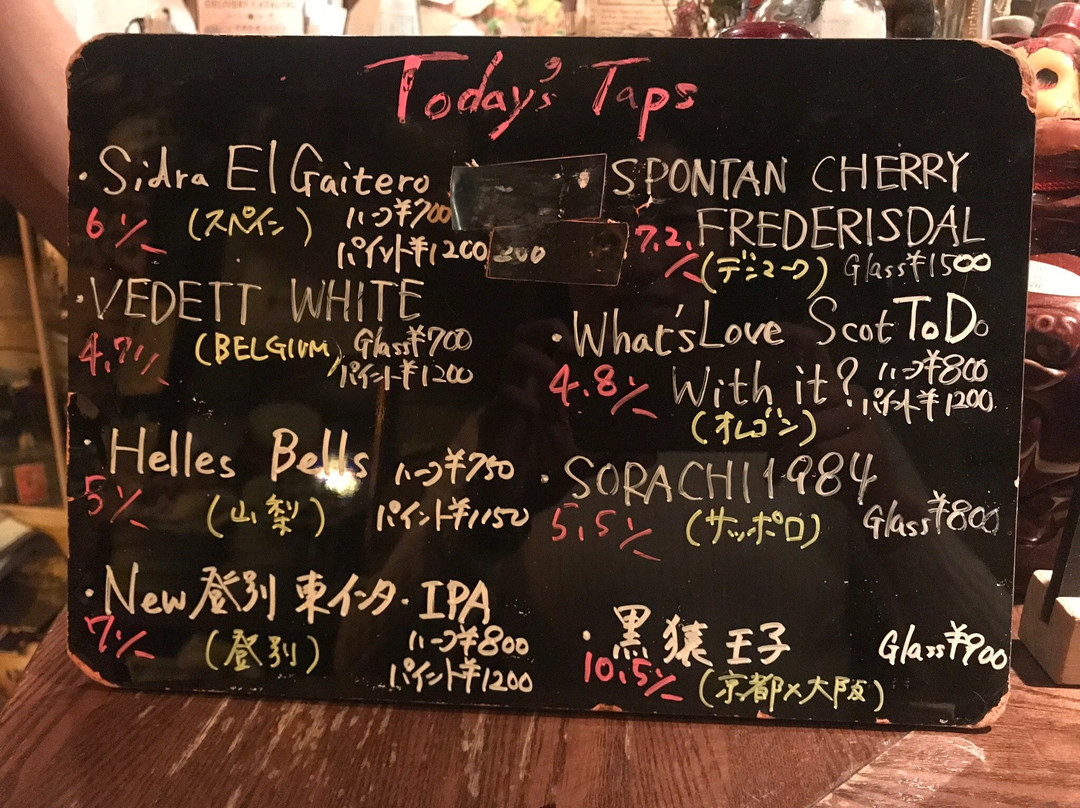 Today's Taps
・Sidra El Gaitero
6% (スペイン) ハーフ¥700
パイント¥1200
・VEDETT WHITE
4.7% (BELGIUM) Glass¥700
パイント¥1200
・Helles Bells ハーフ¥750
5% (山梨) パイント¥1150
・New登別 東インタ・IPA
7% (登別) ハーフ¥800
パイント¥1200
SPONTAN CHERRY
7.2% FREDERISDAL
(デンマーク) Glass¥1500
・What's Love Scot To Do
4.8% With it? ハーフ¥800
パイント¥1200
(オレゴン)
・SORACHI 1984
5.5% (サッポロ) Glass¥800
・黒猿王子 Glass¥900
10.5% (京都×大阪)